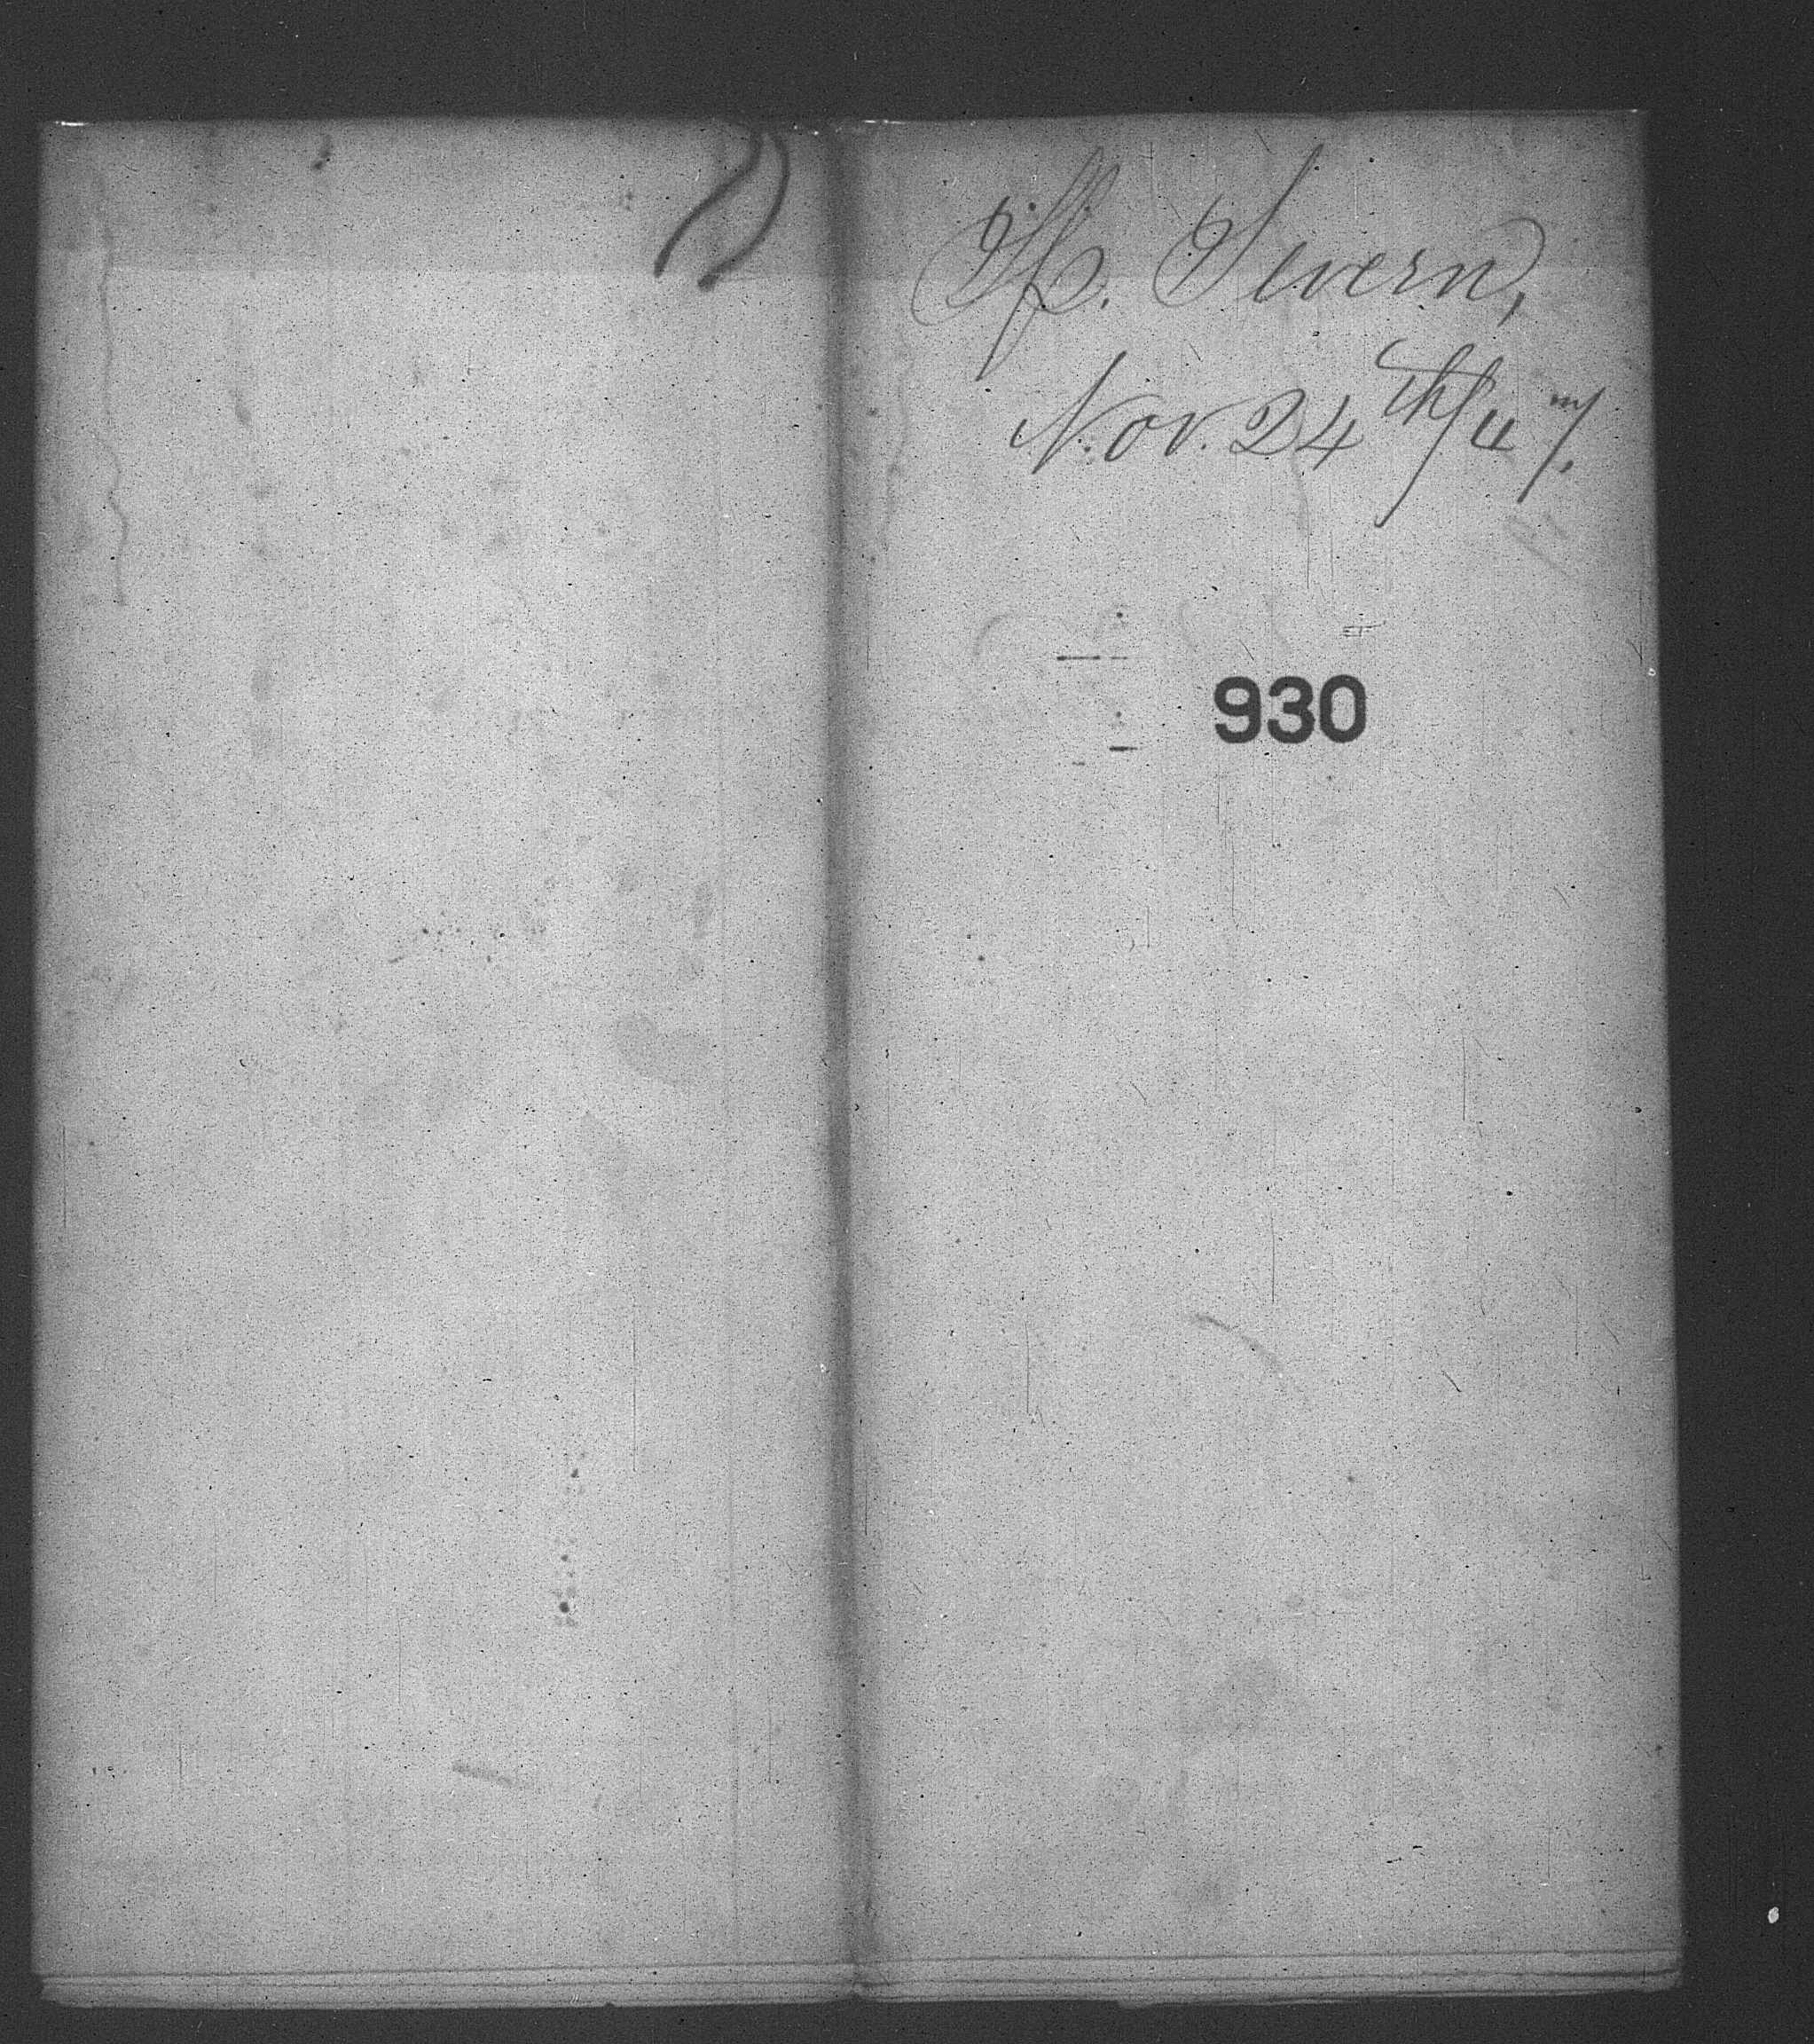 H. Severn,
Nov. 24th/47.
930